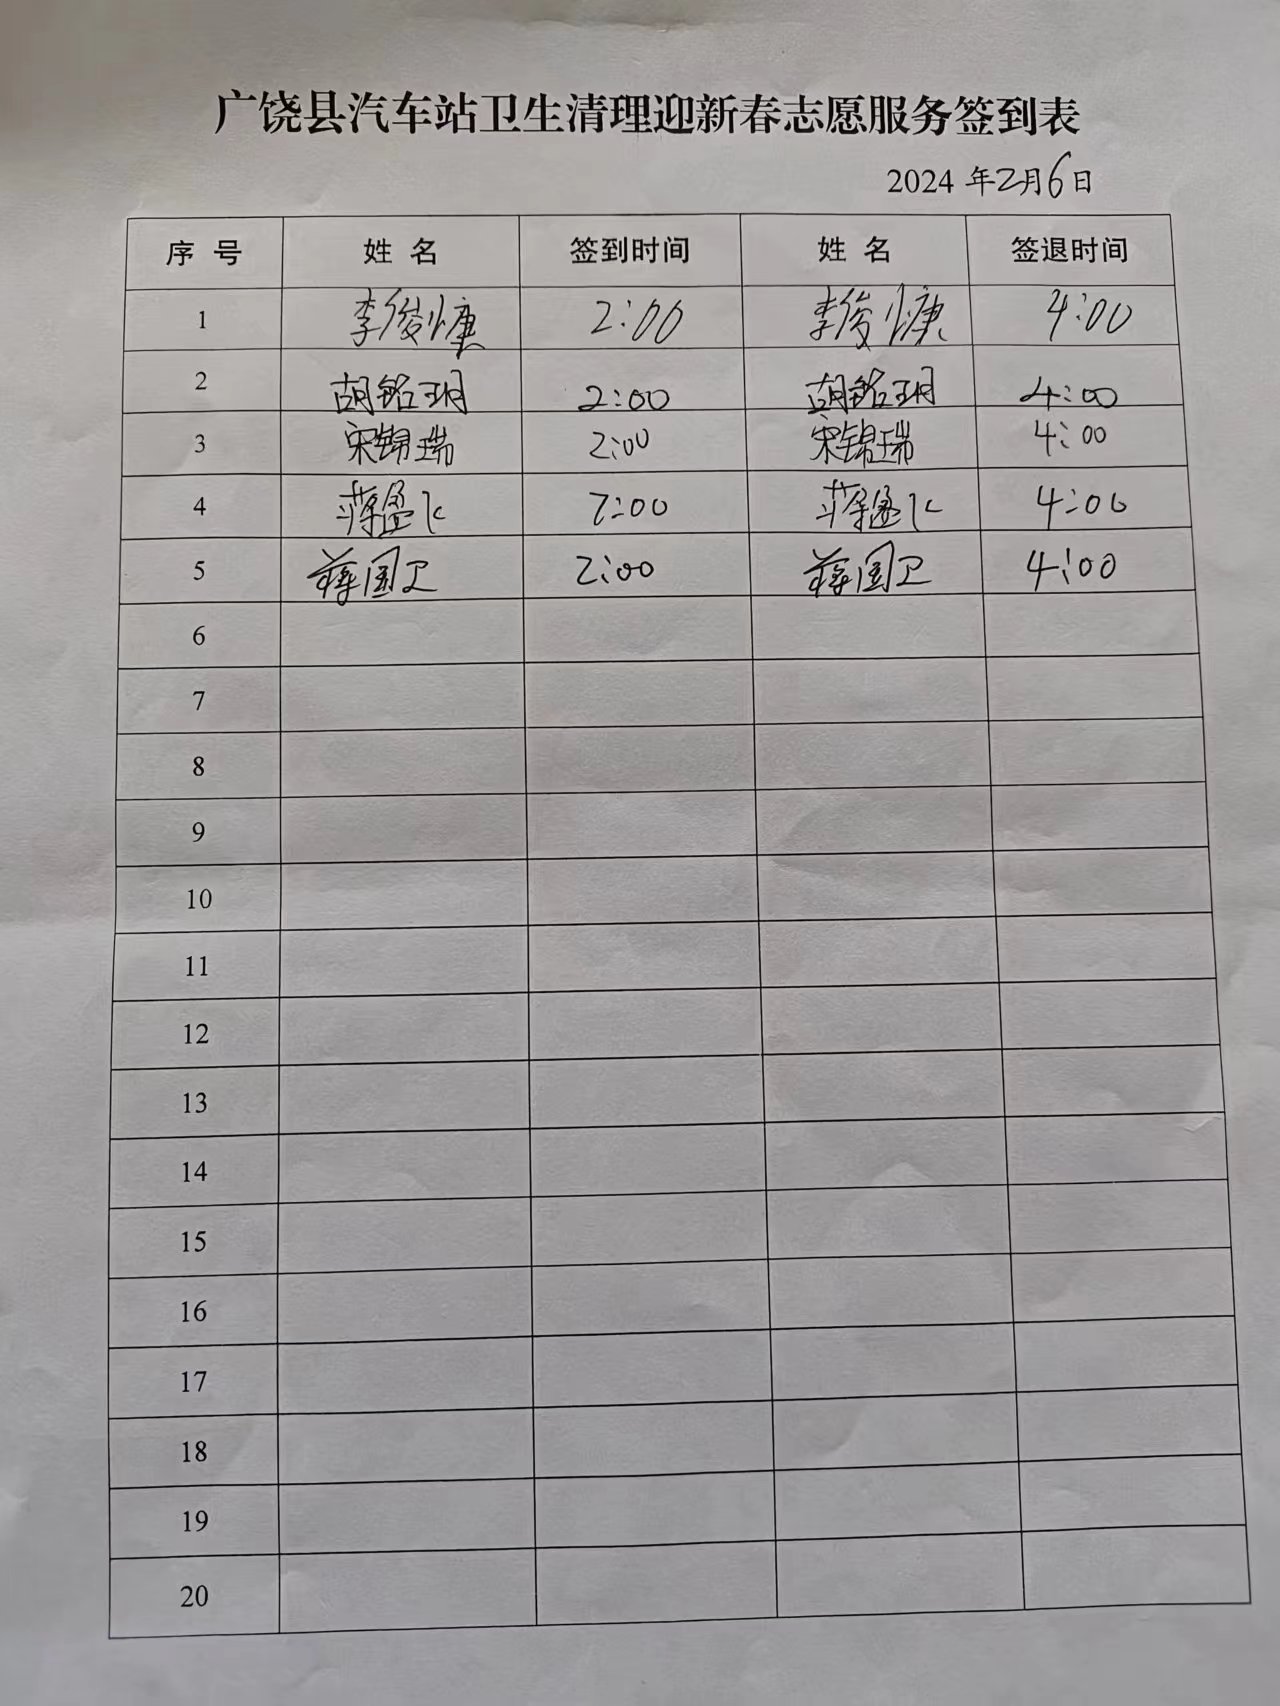 广饶县汽车站卫生清理迎新春志愿服务签到表
2024 年2月6日
序 号 姓 名 签到时间 姓 名 签退时间
1 李俊慷 2:00 李俊慷 4:00
2 胡铭玥 2:00 胡铭玥 4:00
3 宋锦瑞 2:00 宋锦瑞 4:00
4 2:00 4:00
5 蒋国卫 2:00 蒋国卫 4:00
6
7
8
9
10
11
12
13
14
15
16
17
18
19
20